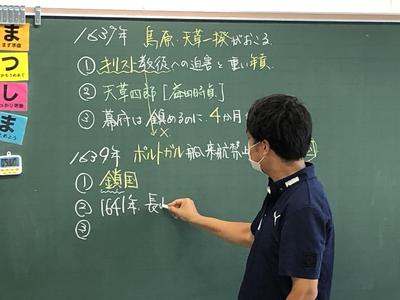 1637年 島原・天草一揆がおこる
① キリスト教徒への迫害と重い年貢
② 天草四郎[益田時貞]
③ 幕府は鎮めるのに、4か月
x
1639年 ポルトガル船来航禁止
① 鎖国
② 1641年、長
③
ま
まず準備
つ
し
ま